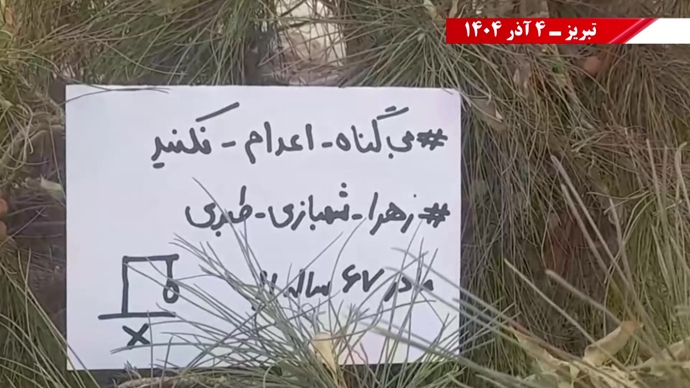 تبریز ـ ۴ آذر ۱۴۰۴
#بی‌گناه-اعدام-نکنید
#زهرا-شهبازی-طبری
مادر ۶۷ ساله
X